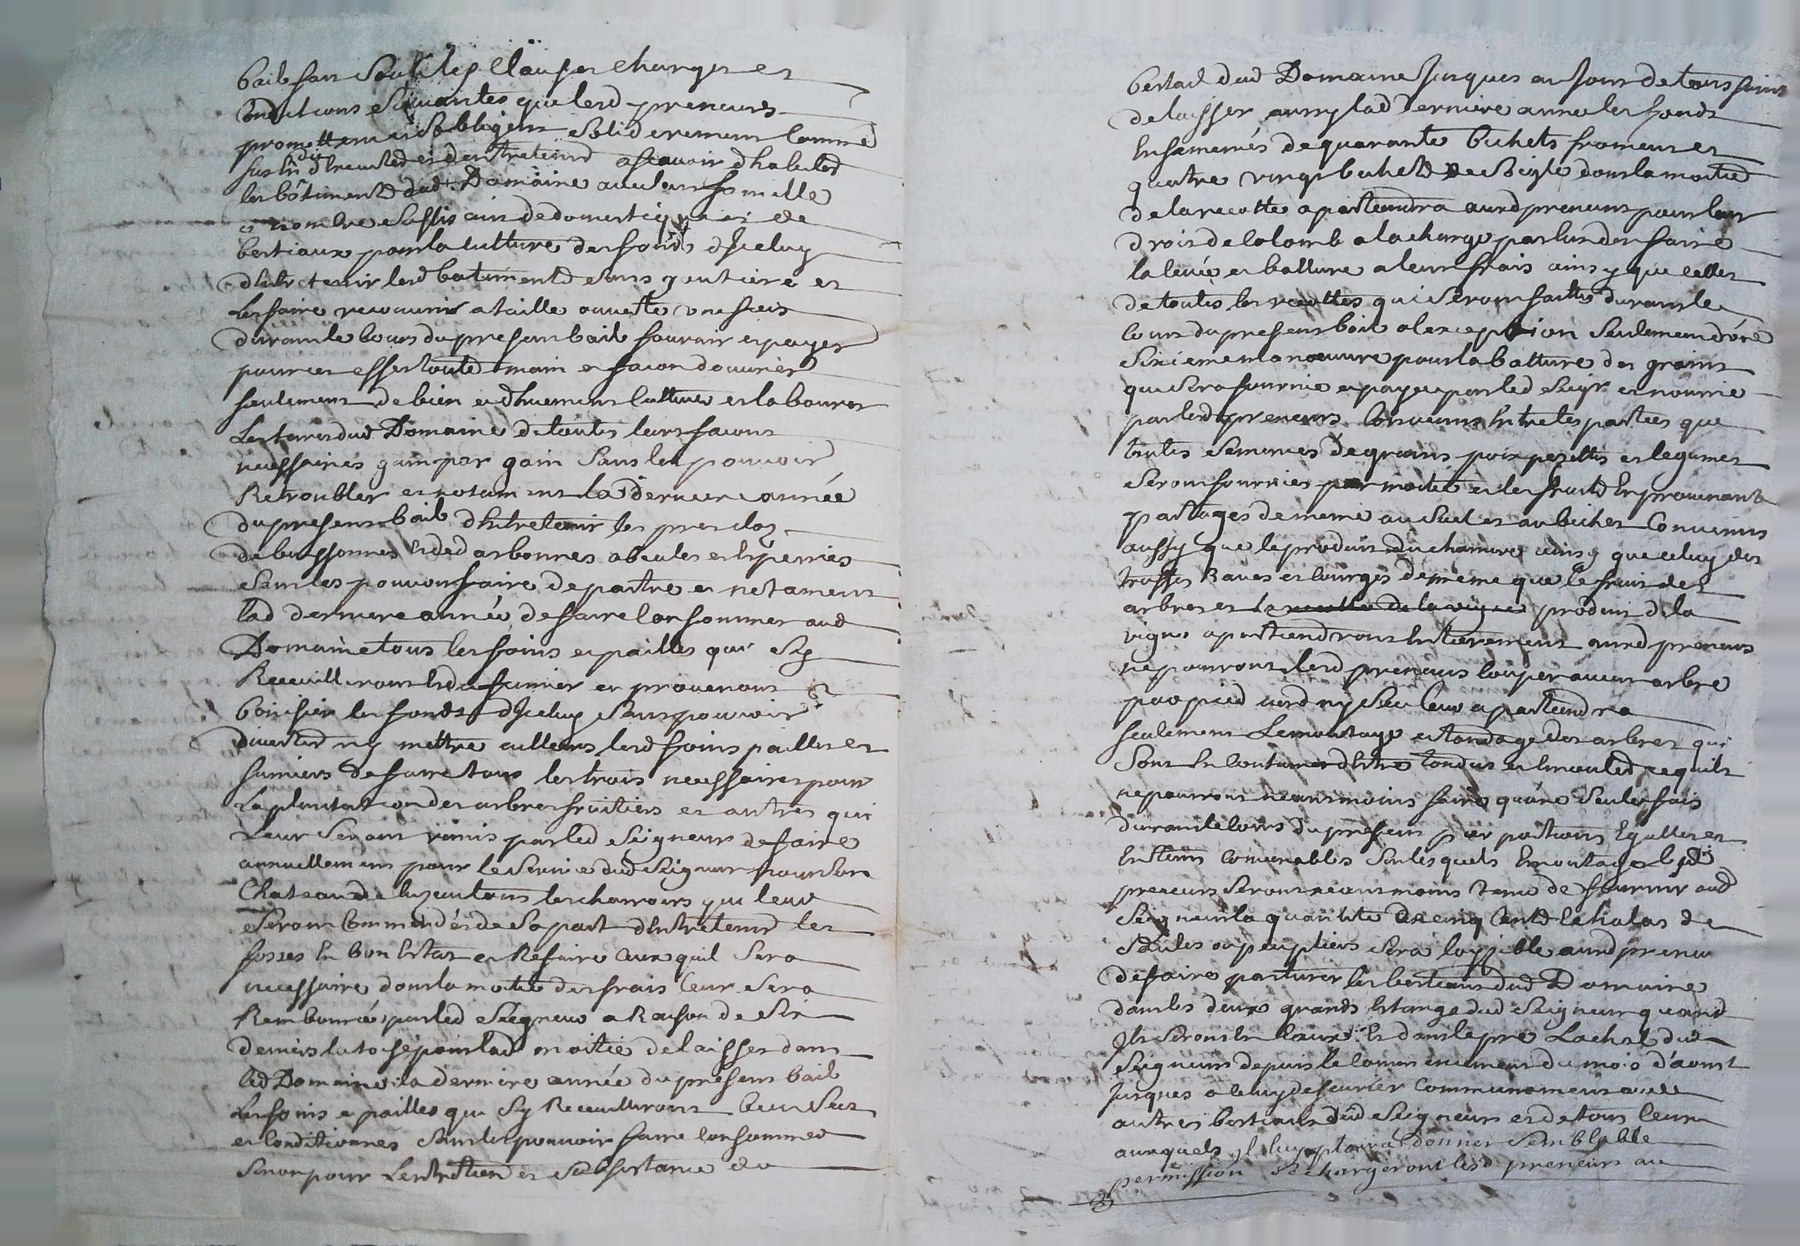 bail fait sous les clauses charges et
conditions suivantes que lesd preneurs
promettent et s'obligent solidairement comme
sus est dit d'executer et d'entretenir a scavoir d'habiter
les bâtiments dud Domaine avec leur famille
et nombre suffisant de domestique et de
bestiaux pour la culture des fonds d'Iceluy
d'entretenir lesd batiments sans goutiere et
Les faire recouvrir a taille ouverte une fois
durant le cours du present bail fournir et payer
pour cet effet toute main et facon d'ouvrier
seulement de bien et dhuement cultiver et labourer
Les terres dud Domaine de toutes leurs facons
necessaires gain par gain sans les pouvoir
Retroubler et notament la derniere année
du present bail d'entretenir les pres clos
de buissonnes et ded arbonnes abeales et épierrés
sans les pouvoir faire depaitre et notament
lad derniere année de faire consommer aud
Domaine tous les foins et pailles qui s'y
Recueilliront et du fumier en provenant
bonifier les fonds d'Iceluy sans pouvoir
divertir ny mettre ailleurs lesd foins pailles et
fumiers de faire tous les trais necessaires pour
La plantation des arbres fruitiers et autres qui
Leur seront remis par led Seigneur de faire
annuellement pour le service dud Seigneur pour son
Chateau de tous les charrois qui leur
seront commendés de sa part d'entretenir les
fosses en bon estat et Refaire ceux quil sera
necessaire dont la moitié des frais leur sera
Rembourcée par led Seigneur a Raison de six
deniers la toise pour lad moitié de laisser dans
led Domaine la derniere année du present bail
Les foins et pailles qui s'y Recueilliront bien secs
et conditionnes sans les pouvoir faire consommer
sinon pour L'entretien et subsistance du
bestail dud Domaine jusques au jour de toussaint
de laisser aussy lad derniere année les fonds
Ensemencés de quarante bichets froment et
quatre vingt bichets de seigle dont la moitié
de la recolte apartiendra auxd preneurs pour leur
droit de colomb a la charge par eux d'en faire
la levée et batture a leurs frais ainsy que celles
de toutes les recoltes qui seront faites durant le
cours du present bail a l'exception seulement d'une
Sixieme manoeuvre pour la batture des grains
qui sera fournie et payée par led Seigr et nourrie
par lesd preneurs Convenus Entre les parties que
toutes semences de grains poix pesettes et legumes
seront fournies par moitié et les fruits En provenant
partagés de meme au sueil et au bichet Convenus
aussy que le produit du chanvre ainsy que celuy des
truffes Raves et courges de meme que le fruit des
arbres et la recolte de la vigne produit de la
vigne apartiendront Entierement auxd preneurs
ne pourront lesd preneurs couper aucun arbre
par pied verd ny sec leur apartiendra
seulement L'emontage et tondage des arbres qui
sont En coutume d'Etre tondus et Emontés ce quils
ne pourront neanmoins faire qu'une seule fois
durant le cours du present par portions Egalles et
En tems convenables sur lesquels Emontages lesd
preneurs seront neanmoins tenu de fournir aud
Seigneur la quantite de cinq cents Echalas de
saules ou peupliers sera loysible auxd preneur
de faire paturer les bestiaux dud Domaine
dans les deux grands Etangs dud Seigneur quand
Ils seront En l'eaux Et dans le pre Lachat dud
Seigneur depuis le commencement du mois d'aoust
jusques a celuy de fevrier communement avec
autres bestiaux dud Seigneur et de tous ceux
auxquels il luy plaira donner semblable
permission se chargeront lesd preneurs au